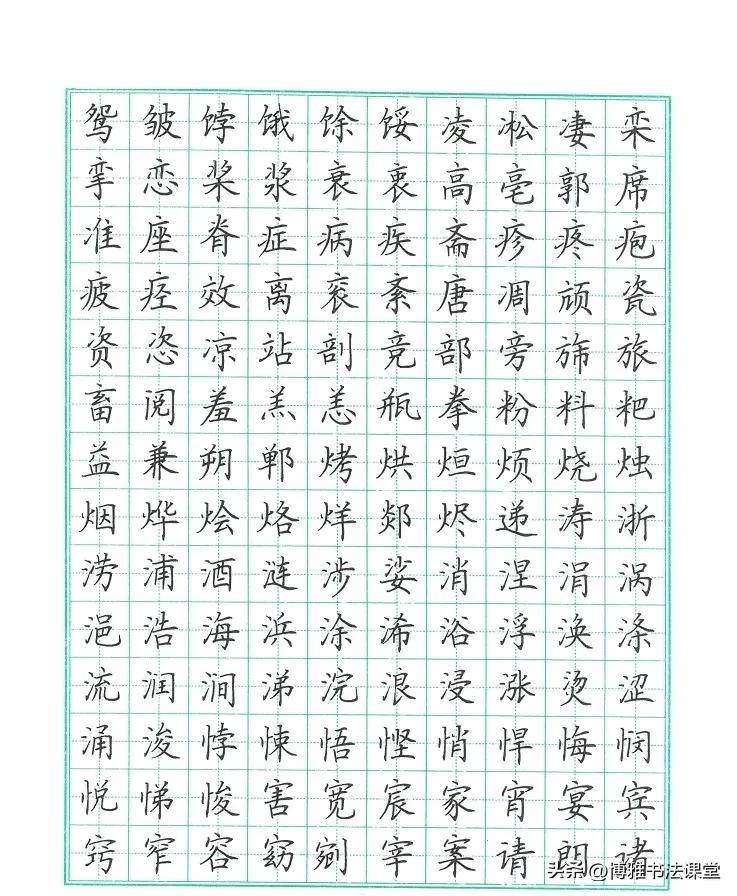 鸳皱饽饿馀馁凌凇凄栾
挛恋桨浆衰衷高亳郭席
准座脊症病疾斋疹疼疱
疲痉效离衮紊唐凋颃瓷
资恣凉站剖竞部旁旆旅
畜阅羞羔恙瓶拳粉料粑
益兼朔郸烤烘烜烦烧烛
烟烨烩烙烊剡烬递涛浙
涝浦酒涟涉娑消涅涓涡
浥浩海浜涂浠浴浮涣涤
流润涧涕浣浪浸涨烫涩
涌浚悖悚悟悭悄悍悔悯
悦悌悛害宽宸家宵宴宾
窍窄容窈剜宰案请朗诸
头条@博雅书法课堂